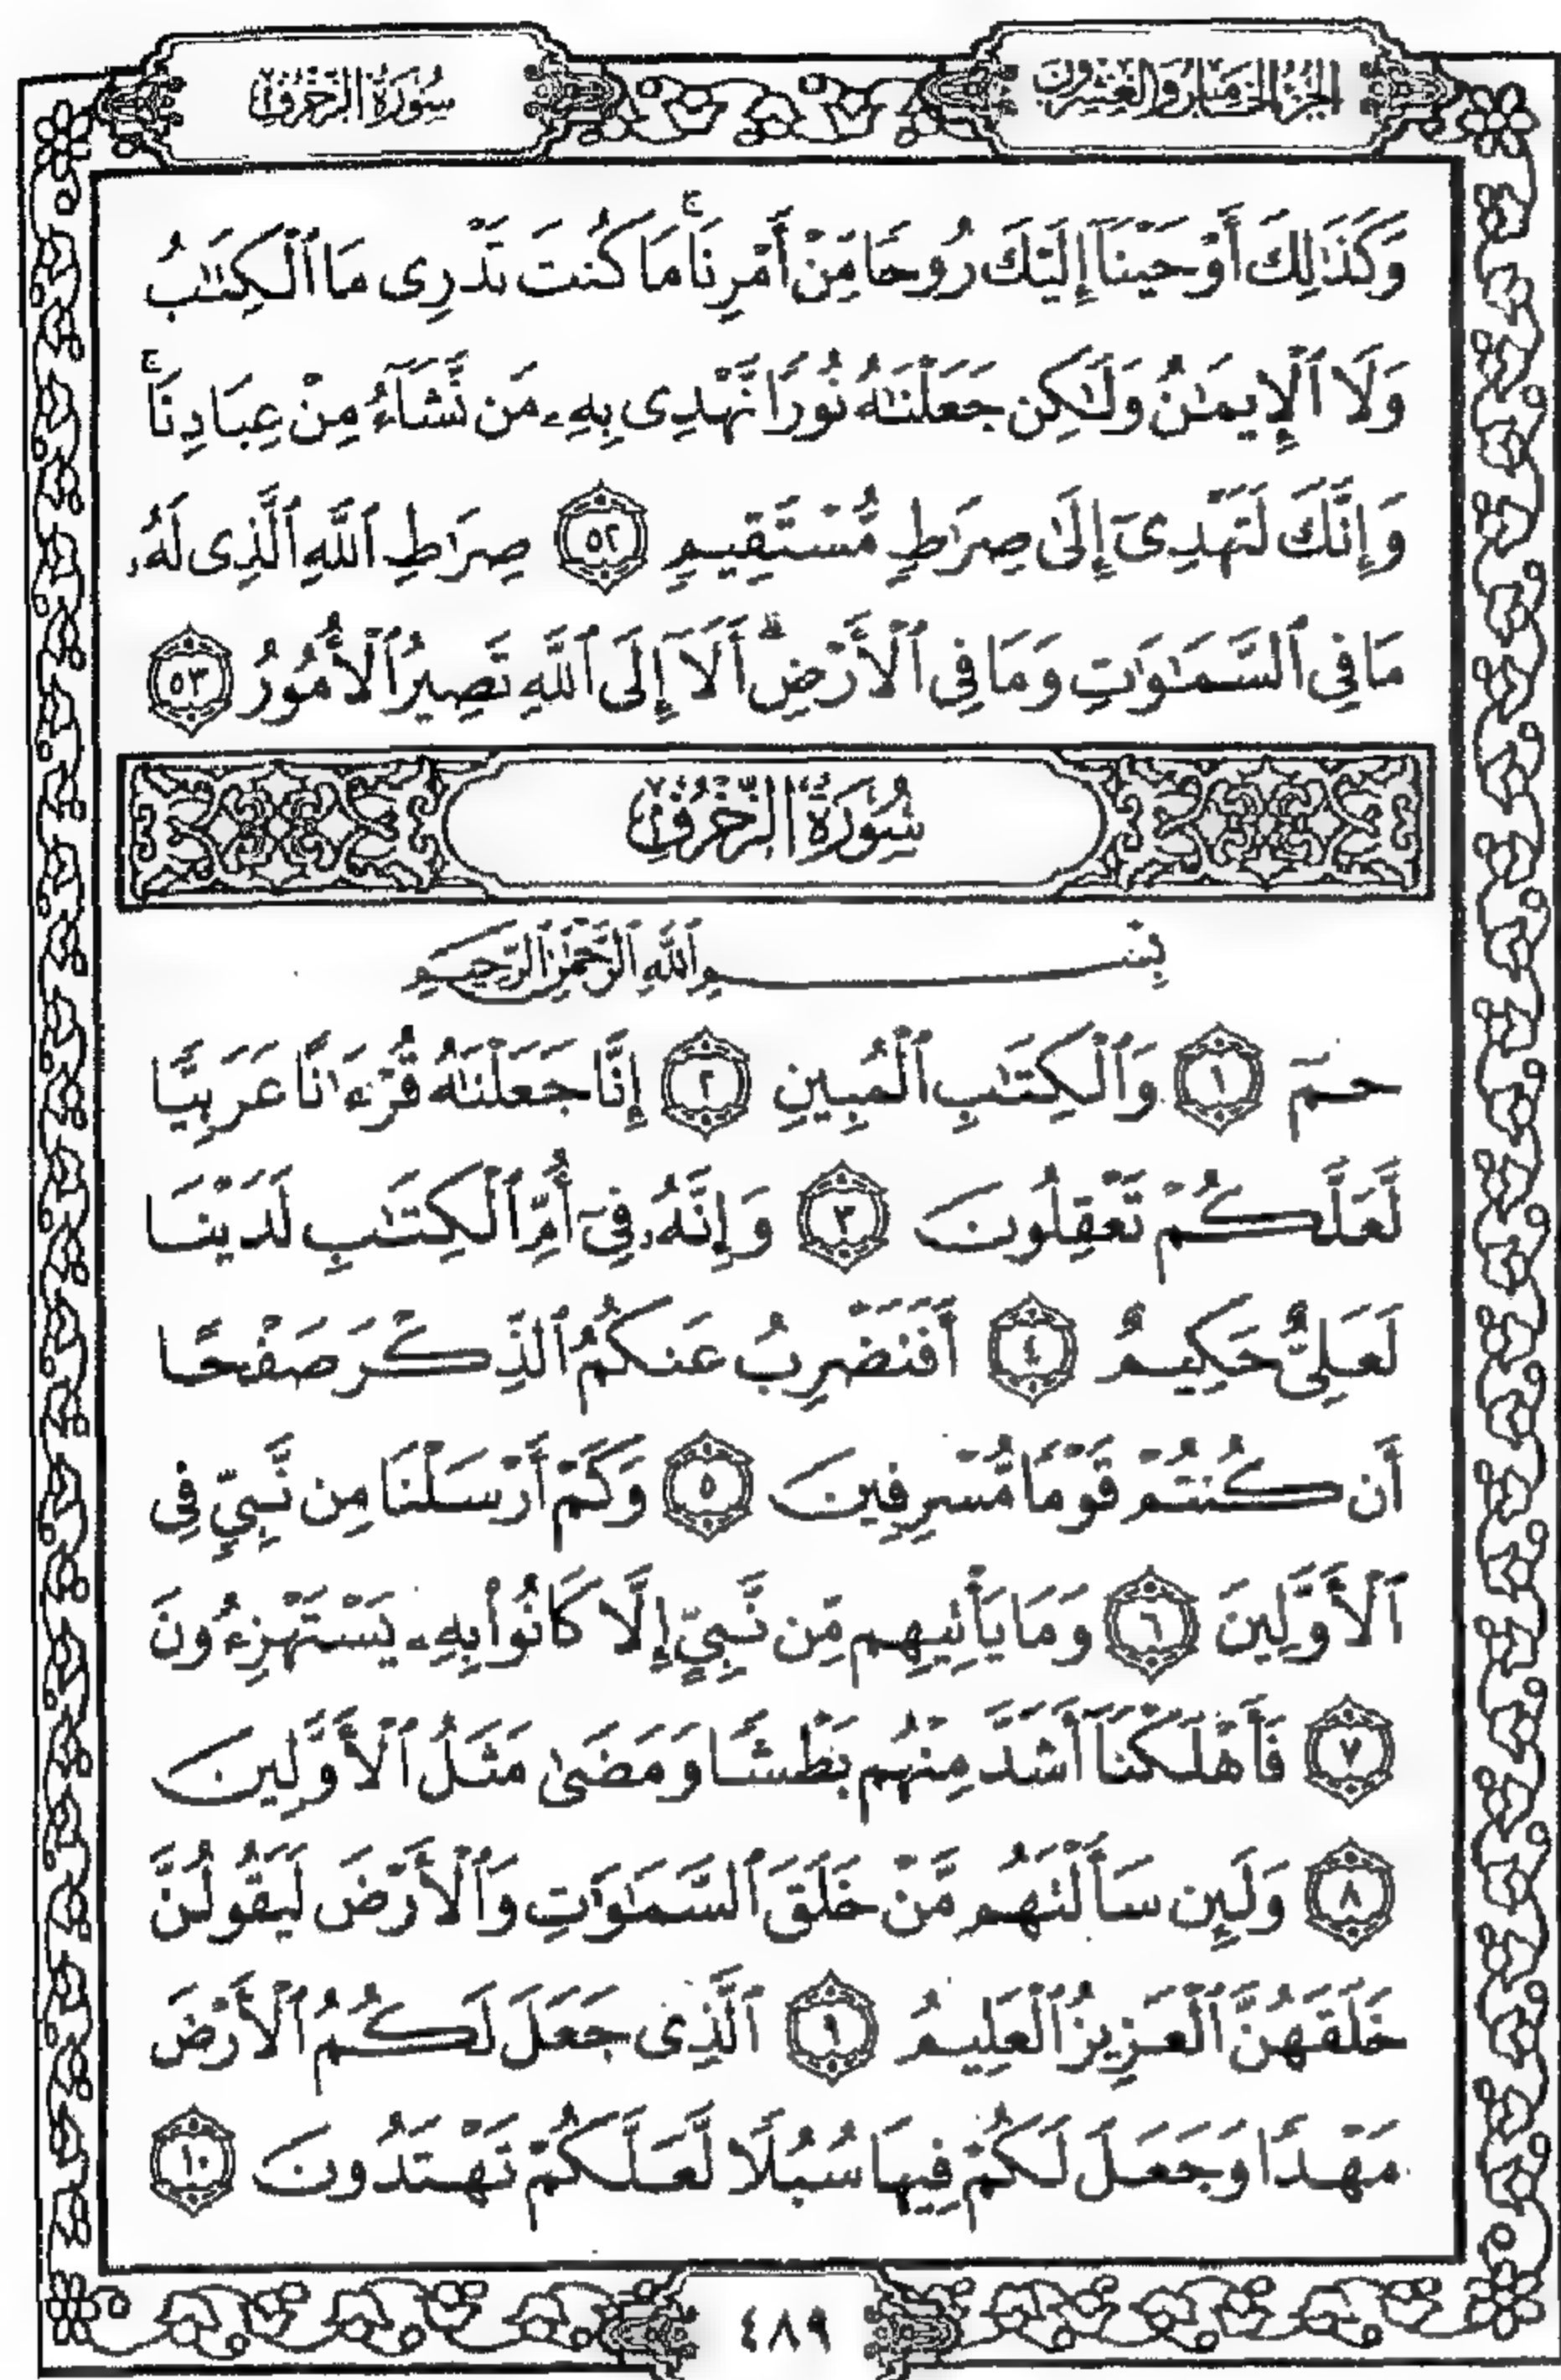 الجزء الخامس والعشرون
سورة الزخرف
وَكَذَٰلِكَ أَوْحَيْنَآ إِلَيْكَ رُوحًا مِّنْ أَمْرِنَا ۚ مَا كُنتَ تَدْرِى مَا ٱلْكِتَٰبُ
وَلَا ٱلْإِيمَٰنُ وَلَٰكِن جَعَلْنَٰهُ نُورًا نَّهْدِى بِهِۦ مَن نَّشَآءُ مِنْ عِبَادِنَا ۚ
وَإِنَّكَ لَتَهْدِىٓ إِلَىٰ صِرَٰطٍ مُّسْتَقِيمٍ ٥٢ صِرَٰطِ ٱللَّهِ ٱلَّذِى لَهُۥ
مَا فِى ٱلسَّمَٰوَٰتِ وَمَا فِى ٱلْأَرْضِ ۗ أَلَآ إِلَى ٱللَّهِ تَصِيرُ ٱلْأُمُورُ ٥٣
سُورَةُ الزُّخْرُفِ
بِسْمِ ٱللَّهِ ٱلرَّحْمَٰنِ ٱلرَّحِيمِ
حمٓ ١ وَٱلْكِتَٰبِ ٱلْمُبِينِ ٢ إِنَّا جَعَلْنَٰهُ قُرْءَٰنًا عَرَبِيًّا
لَّعَلَّكُمْ تَعْقِلُونَ ٣ وَإِنَّهُۥ فِىٓ أُمِّ ٱلْكِتَٰبِ لَدَيْنَا
لَعَلِىٌّ حَكِيمٌ ٤ أَفَنَضْرِبُ عَنكُمُ ٱلذِّكْرَ صَفْحًا
أَن كُنتُمْ قَوْمًا مُّسْرِفِينَ ٥ وَكَمْ أَرْسَلْنَا مِن نَّبِىٍّ فِى
ٱلْأَوَّلِينَ ٦ وَمَا يَأْتِيهِم مِّن نَّبِىٍّ إِلَّا كَانُوا۟ بِهِۦ يَسْتَهْزِءُونَ
٧ فَأَهْلَكْنَآ أَشَدَّ مِنْهُم بَطْشًا وَمَضَىٰ مَثَلُ ٱلْأَوَّلِينَ
٨ وَلَئِن سَأَلْتَهُم مَّنْ خَلَقَ ٱلسَّمَٰوَٰتِ وَٱلْأَرْضَ لَيَقُولُنَّ
خَلَقَهُنَّ ٱلْعَزِيزُ ٱلْعَلِيمُ ٩ ٱلَّذِى جَعَلَ لَكُمُ ٱلْأَرْضَ
مَهْدًا وَجَعَلَ لَكُمْ فِيهَا سُبُلًا لَّعَلَّكُمْ تَهْتَدُونَ ١٠
٤٨٩